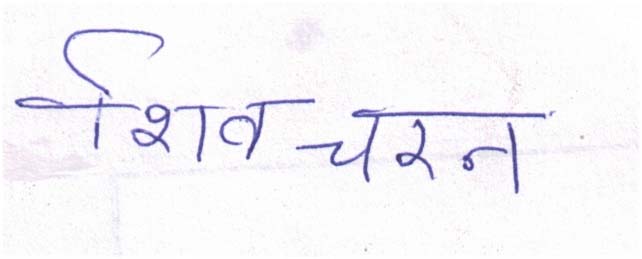 शिव चरन